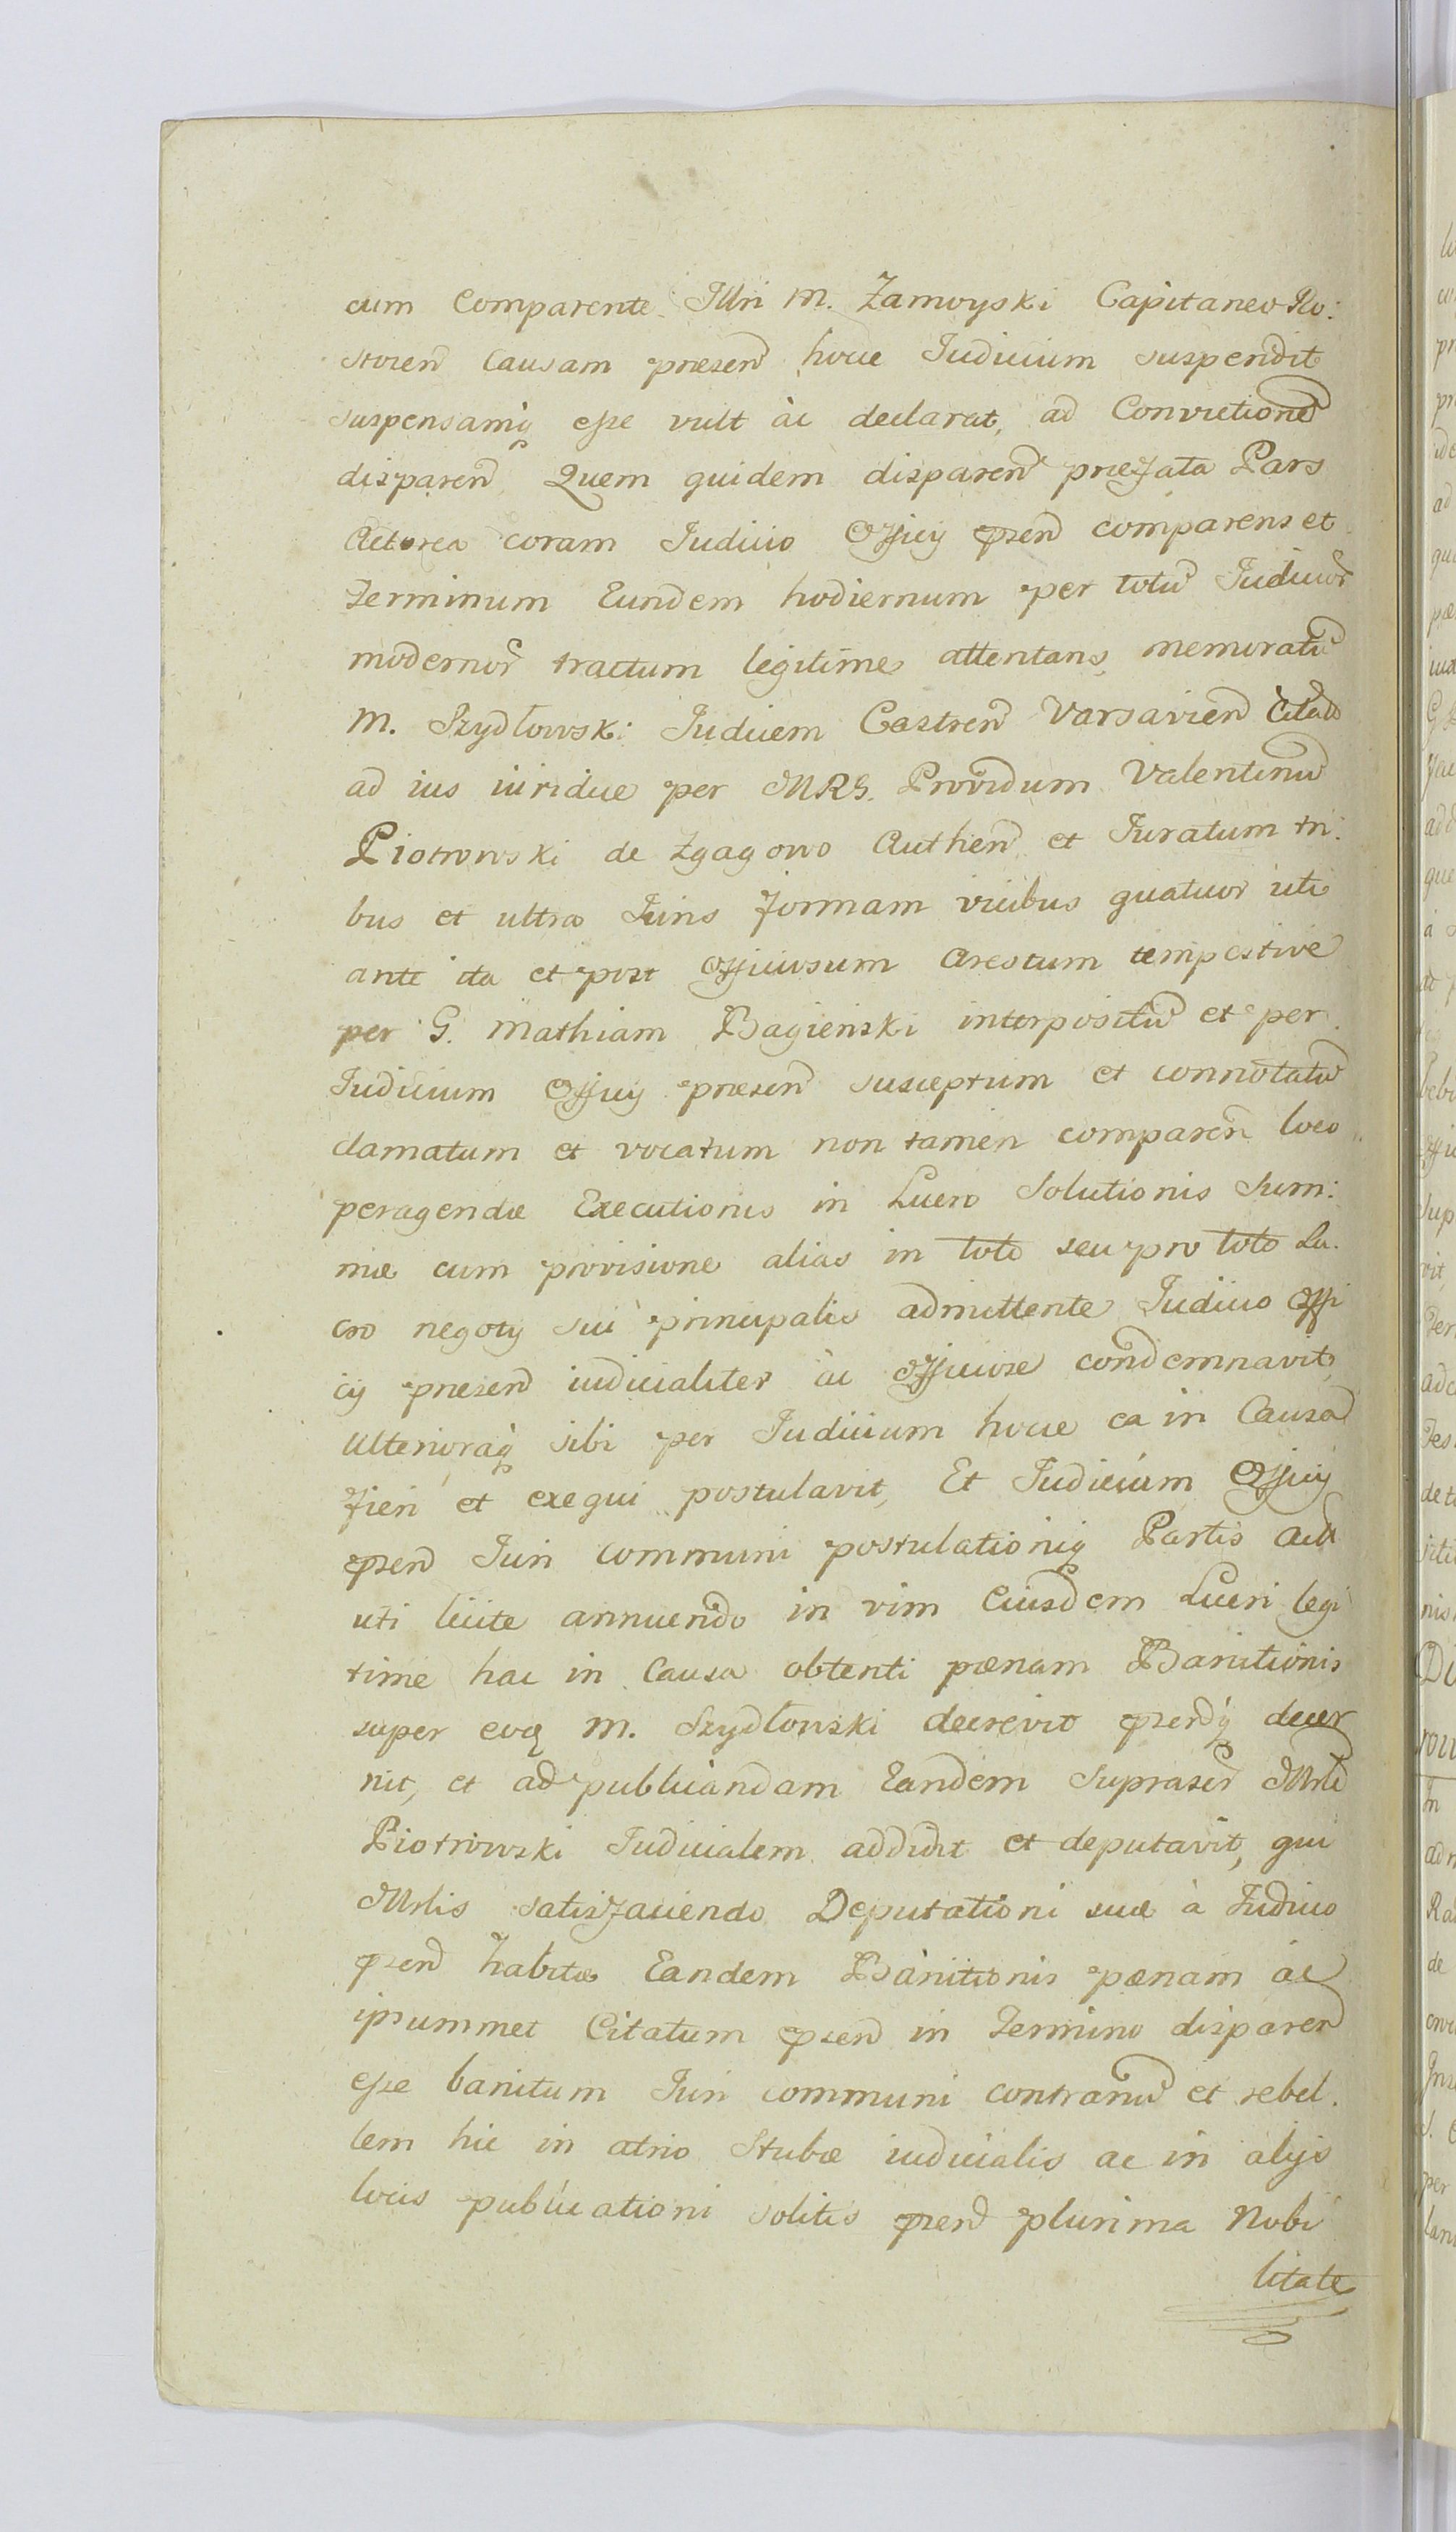 cum Comparente Illri M. Zamoyski Capitaneo Ro:
stoien Causam præsen hocce Iudicium suspendit
suspensamq esse vult ac declarat, ad Convictione
disparen Quem quidem disparen præfata Pars
Actorea coram Iudicio Officij psen comparens et
Terminum Eundem hodiernum per totu Iudicior
modernor tractum legitime attentans memoratu
M. Szydłowski Iudicem Castren Varsavien Citatu
ad ius iuridice per MRG. Providum Valentinu
Piotrowski de Zgagowo Authen et Iuratum tri:
bus et ultra Iuris formam vicibus quatuor uti
ante ita et post Officiosum Arestum tempestive
per G. Mathiam Bagienski interpositu et per
Iudicium Officij præsen susceptum et connotatu
clamatum et vocatum non tamen comparen loco
peragendæ Executionis in Lucro Solutionis Sum:
mæ cum provisione alias in toto seu pro toto Lu:
cro negotij sui principalis admittente Iudicio Offi
cij præsen iudicialiter ac Officiose condemnavit,
Ulterioraq sibi per Iudicium hocce ea in Causa
fieri et exequi postulavit, Et Iudicium Officij
psen Iuri communi postulationiq Partis Act
uti licite annuendo in vim Eiusdem Lucri legi
time hac in Causa obtenti pænam Banitionis
super eoq M. Szydłowski decrevit psenq decer
nit, et ad publicandam Eandem Suprascr Mrlē
Piotrowski Iudicialem addidit et deputavit, qui
Mrlis satisfaciendo Deputationi suæ à Iudicio
psen habitæ Eandem Banitionis pænam ac
ipsummet Citatum psen in Termino disparen
esse banitum Iuri communi contrariu et rebel:
lem hic in atrio Stubæ iudicialis ac in alijs
locis publicationi solitis psen plurima Nobi
litate